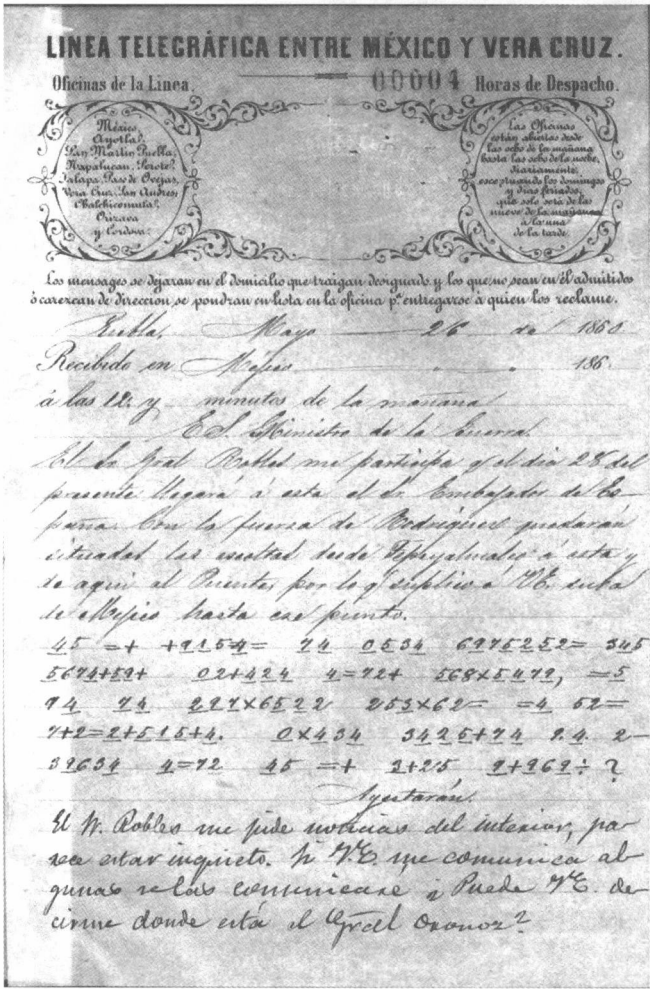 LINEA TELEGRÁFICA ENTRE MÉXICO Y VERA CRUZ.
Oficinas de la Linea. 00004 Horas de Despacho.
México,
Ayotla,
San Martin, Puebla,
Napalucan, Perote,
Jalapa, Paso de Ovejas,
Vera Cruz, San Andres
Chalchicomula,
Orizava
y Cordova.
Las Oficinas
están abiertas desde
las ocho de la mañana
hasta las ocho de la noche,
diariamente,
esceptuando los domingos
y dias feriados,
que solo será de las
nueve de la mañana
á la una
de la tarde.
Los mensages se dejaran en el domicilio que traigan designado y los que no sean en él admitidos
ó carezcan de direccion se pondran en lista en la oficina pª entregarse á quien los reclame.
Puebla. Mayo 26 de 1860
Recibido en Mejico 186
á las 12 y minutos de la mañana
E. S. Ministro de la Guerra.
El Sr. Gral Robles me participa q el dia 28 del
presente llegará á esta el Sr. Embajador de Es-
paña. Con la fuerza de Rodriguez quedarán
situadas las escoltas desde á esta y
de aqui al Puente, por lo q suplico a VE. suba
de Mejico hasta ese punto.
45 =+ +9154= 74 0534 6975252= 345
5674+59+ 02+424 4=72+ 568×5479, =5
94 74 297×6522 253×62= =4 52=
7+2=2+515+4. 0×434 3425+74 9.4. 2-
39634 4=72 45 =+ 3+25 9+969÷ ?
El Sr. Robles me pide noticias del interior, pa-
rece estar inquieto. Si V.E. me comunica al-
gunas se las comunicaré ¿Puede V.E. de-
cirme donde está el Gral Oronoz?